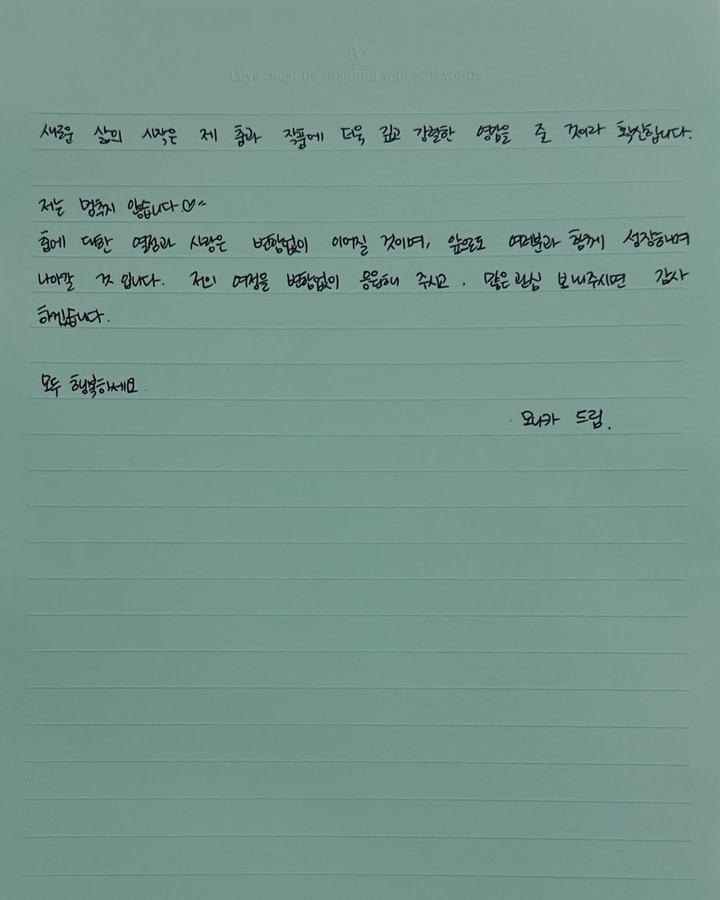 Love must be fostered with soft words
새로운 삶의 시작은 제 춤과 작품에 더욱 깊고 강렬한 영감을 줄 것이라 확신합니다.
저는 멈추지 않습니다.♡~
춤에 대한 열정과 사랑은 변함없이 이어질 것이며, 앞으로도 여러분과 함께 성장하며
나아갈 것 입니다. 저의 여정을 변함없이 응원해 주시고, 많은 관심 보내주시면 감사
하겠습니다.
모두 행복하세요.
모니카 드림.